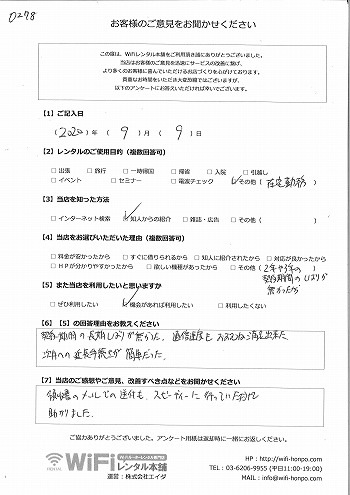 0278
お客様のご意見をお聞かせください
この度は、WiFiレンタル本舗をご利用頂き誠にありがとうございました。
当店はお客様のご意見を迅速にサービスの改善に繋げ、
より多くのお客様に喜んでいただけるお店づくりを心がけております。
貴重なお時間をいただき大変恐縮ではございますが、
以下のアンケートにお答えいただければ幸いでございます。
【1】ご記入日
(2022)年 ( 9 )月( 9 )日
【2】レンタルのご使用目的（複数回答可）
□出張 □旅行 □一時帰国 □帰省 □入院 □引越し
□イベント □セミナー □電波チェック ☑その他（在宅勤務）
【3】当店を知った方法
□インターネット検索 ☑知人からの紹介 □雑誌・広告 □その他（ ）
【4】当店をお選びいただいた理由（複数回答可）
□料金が安かったから □すぐに借りられるから □知人に紹介されたから □対応が良かったから
□HPが分かりやすかったから □欲しい機種があったから □その他（2年や3年の
契約期間のしばりが
無かったから
【5】また当店を利用したいと思いますか
□ぜひ利用したい ☑機会があれば利用したい □利用したくない
【6】【5】の回答理由をお教えください
契約期間の長期しばりが無かった。通信速度もおおむね満足出来た。
次月への延長手続きが簡単だった。
【7】当店のご感想やご意見、改善すべき点などをお聞かせください
領収書のメールでの送付も、スピーディーに行っていただけ
助かりました。
ご協力ありがとうございました。アンケート用紙は返却時に一緒にお返しください。
WiFi RENTAL
WiFiルーターレンタル専門店
レンタル本舗
運営：株式会社エイダ
HP：http://wifi-honpo.com
TEL：03-6206-9955 (平日11:00-19:00)
MAIL：info@wifi-honpo.com